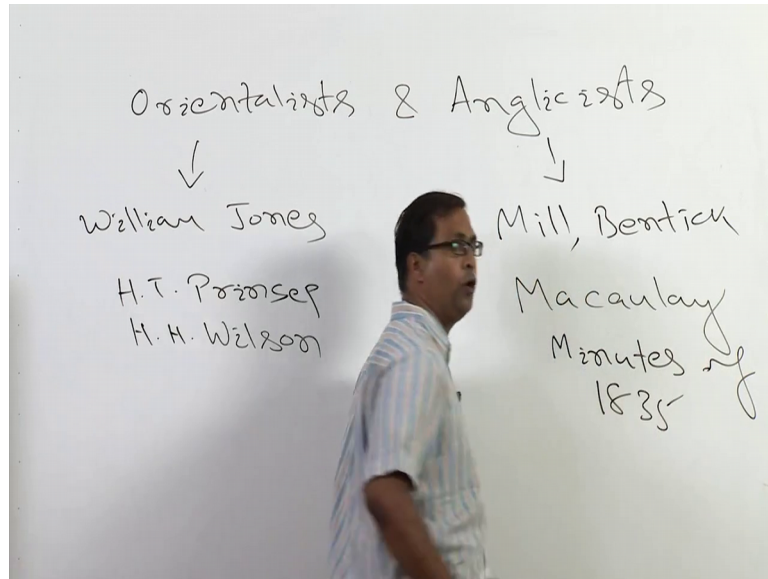 Orientalists & Anglicists
William Jones
H.T. Prinsep
H.H. Wilson
Mill, Bentick
Macaulay
Minutes of
1835